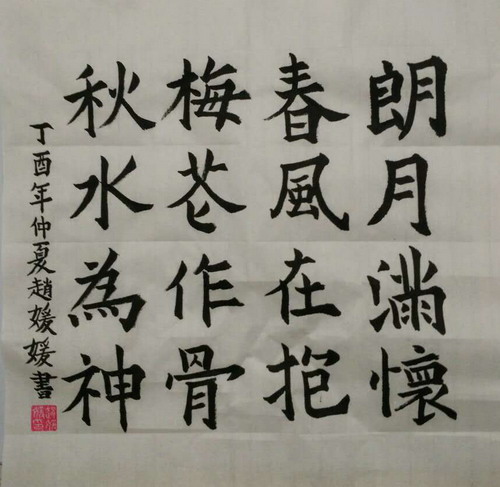 朗月滿懷
春風在抱
梅花作骨
秋水為神
丁酉年仲夏趙媛媛書